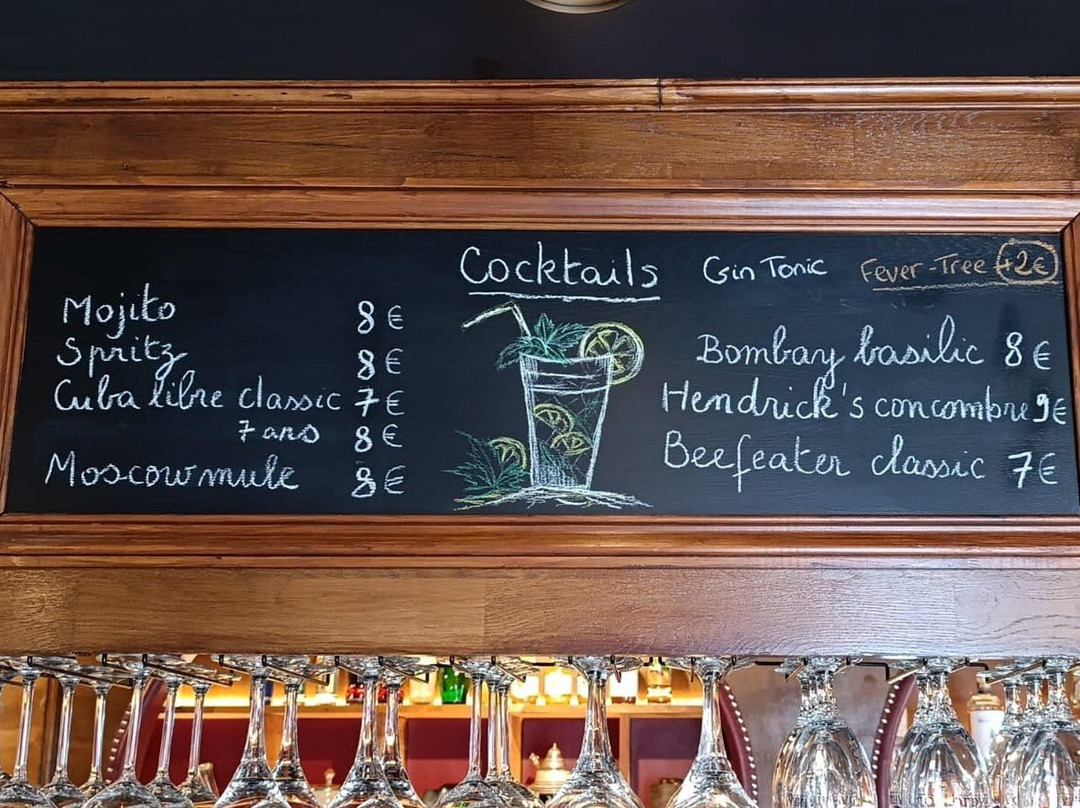 Cocktails
Mojito 8 €
Spritz 8 €
Cuba libre classic 7 €
7 ans 8 €
Moscow mule 8 €
Gin Tonic Fever-Tree +2€
Bombay basilic 8 €
Hendrick's concombre 9€
Beefeater classic 7€